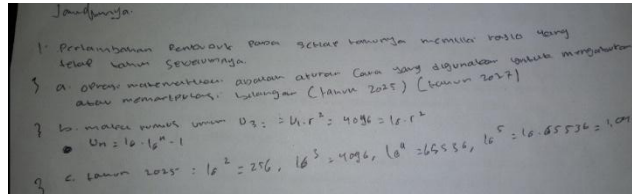 Jawabnya.
1. Pertambahan Penduduk Pada setiap tahunnya memiliki rasio yang
tetap tahun sebelumnya.
3 a. operasi matematika: adalah aturan cara yang digunakan untuk
atau bilangan (tahun 2025) (tahun 2027)
3 b. maka rumus umum U3 : = U1.r² = 4096 = 16.r²
• Un = 16.16ⁿ-1
3 c. tahun 2025 : 16² = 256, 16³ = 4096, 16⁴ = 65536, 16⁵ = 16.65536 =